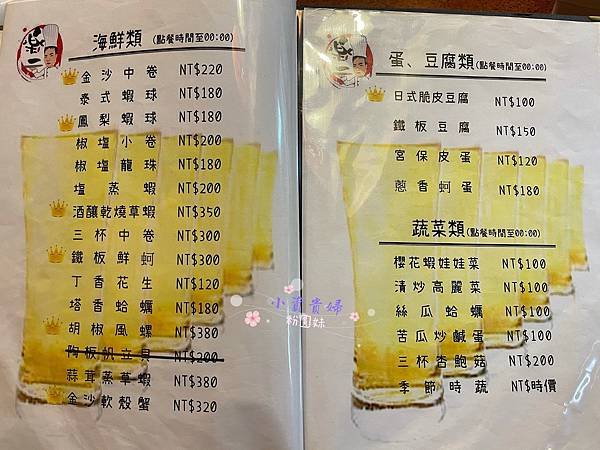 海鮮類 (點餐時間至00:00)
金沙中卷 NT$220
泰式蝦球 NT$180
鳳梨蝦球 NT$180
椒塩小卷 NT$200
椒塩龍珠 NT$180
塩蒸蝦 NT$200
酒釀乾燒草蝦 NT$350
三杯中卷 NT$300
鐵板鮮蚵 NT$300
丁香花生 NT$120
塔香蛤蠣 NT$180
胡椒風螺 NT$380
陶板帆立貝 NT$200
蒜茸蒸草蝦 NT$380
金沙軟殼蟹 NT$320
蛋、豆腐類(點餐時間至00:00)
日式脆皮豆腐 NT$100
鐵板豆腐 NT$150
宮保皮蛋 NT$120
蔥香蚵蛋 NT$180
蔬菜類(點餐時間至00:00)
櫻花蝦娃娃菜 NT$100
清炒高麗菜 NT$100
絲瓜蛤蠣 NT$100
苦瓜炒鹹蛋 NT$100
三杯杏鮑菇 NT$200
季節時蔬 NT$時價
小資貴婦
粉圓妹